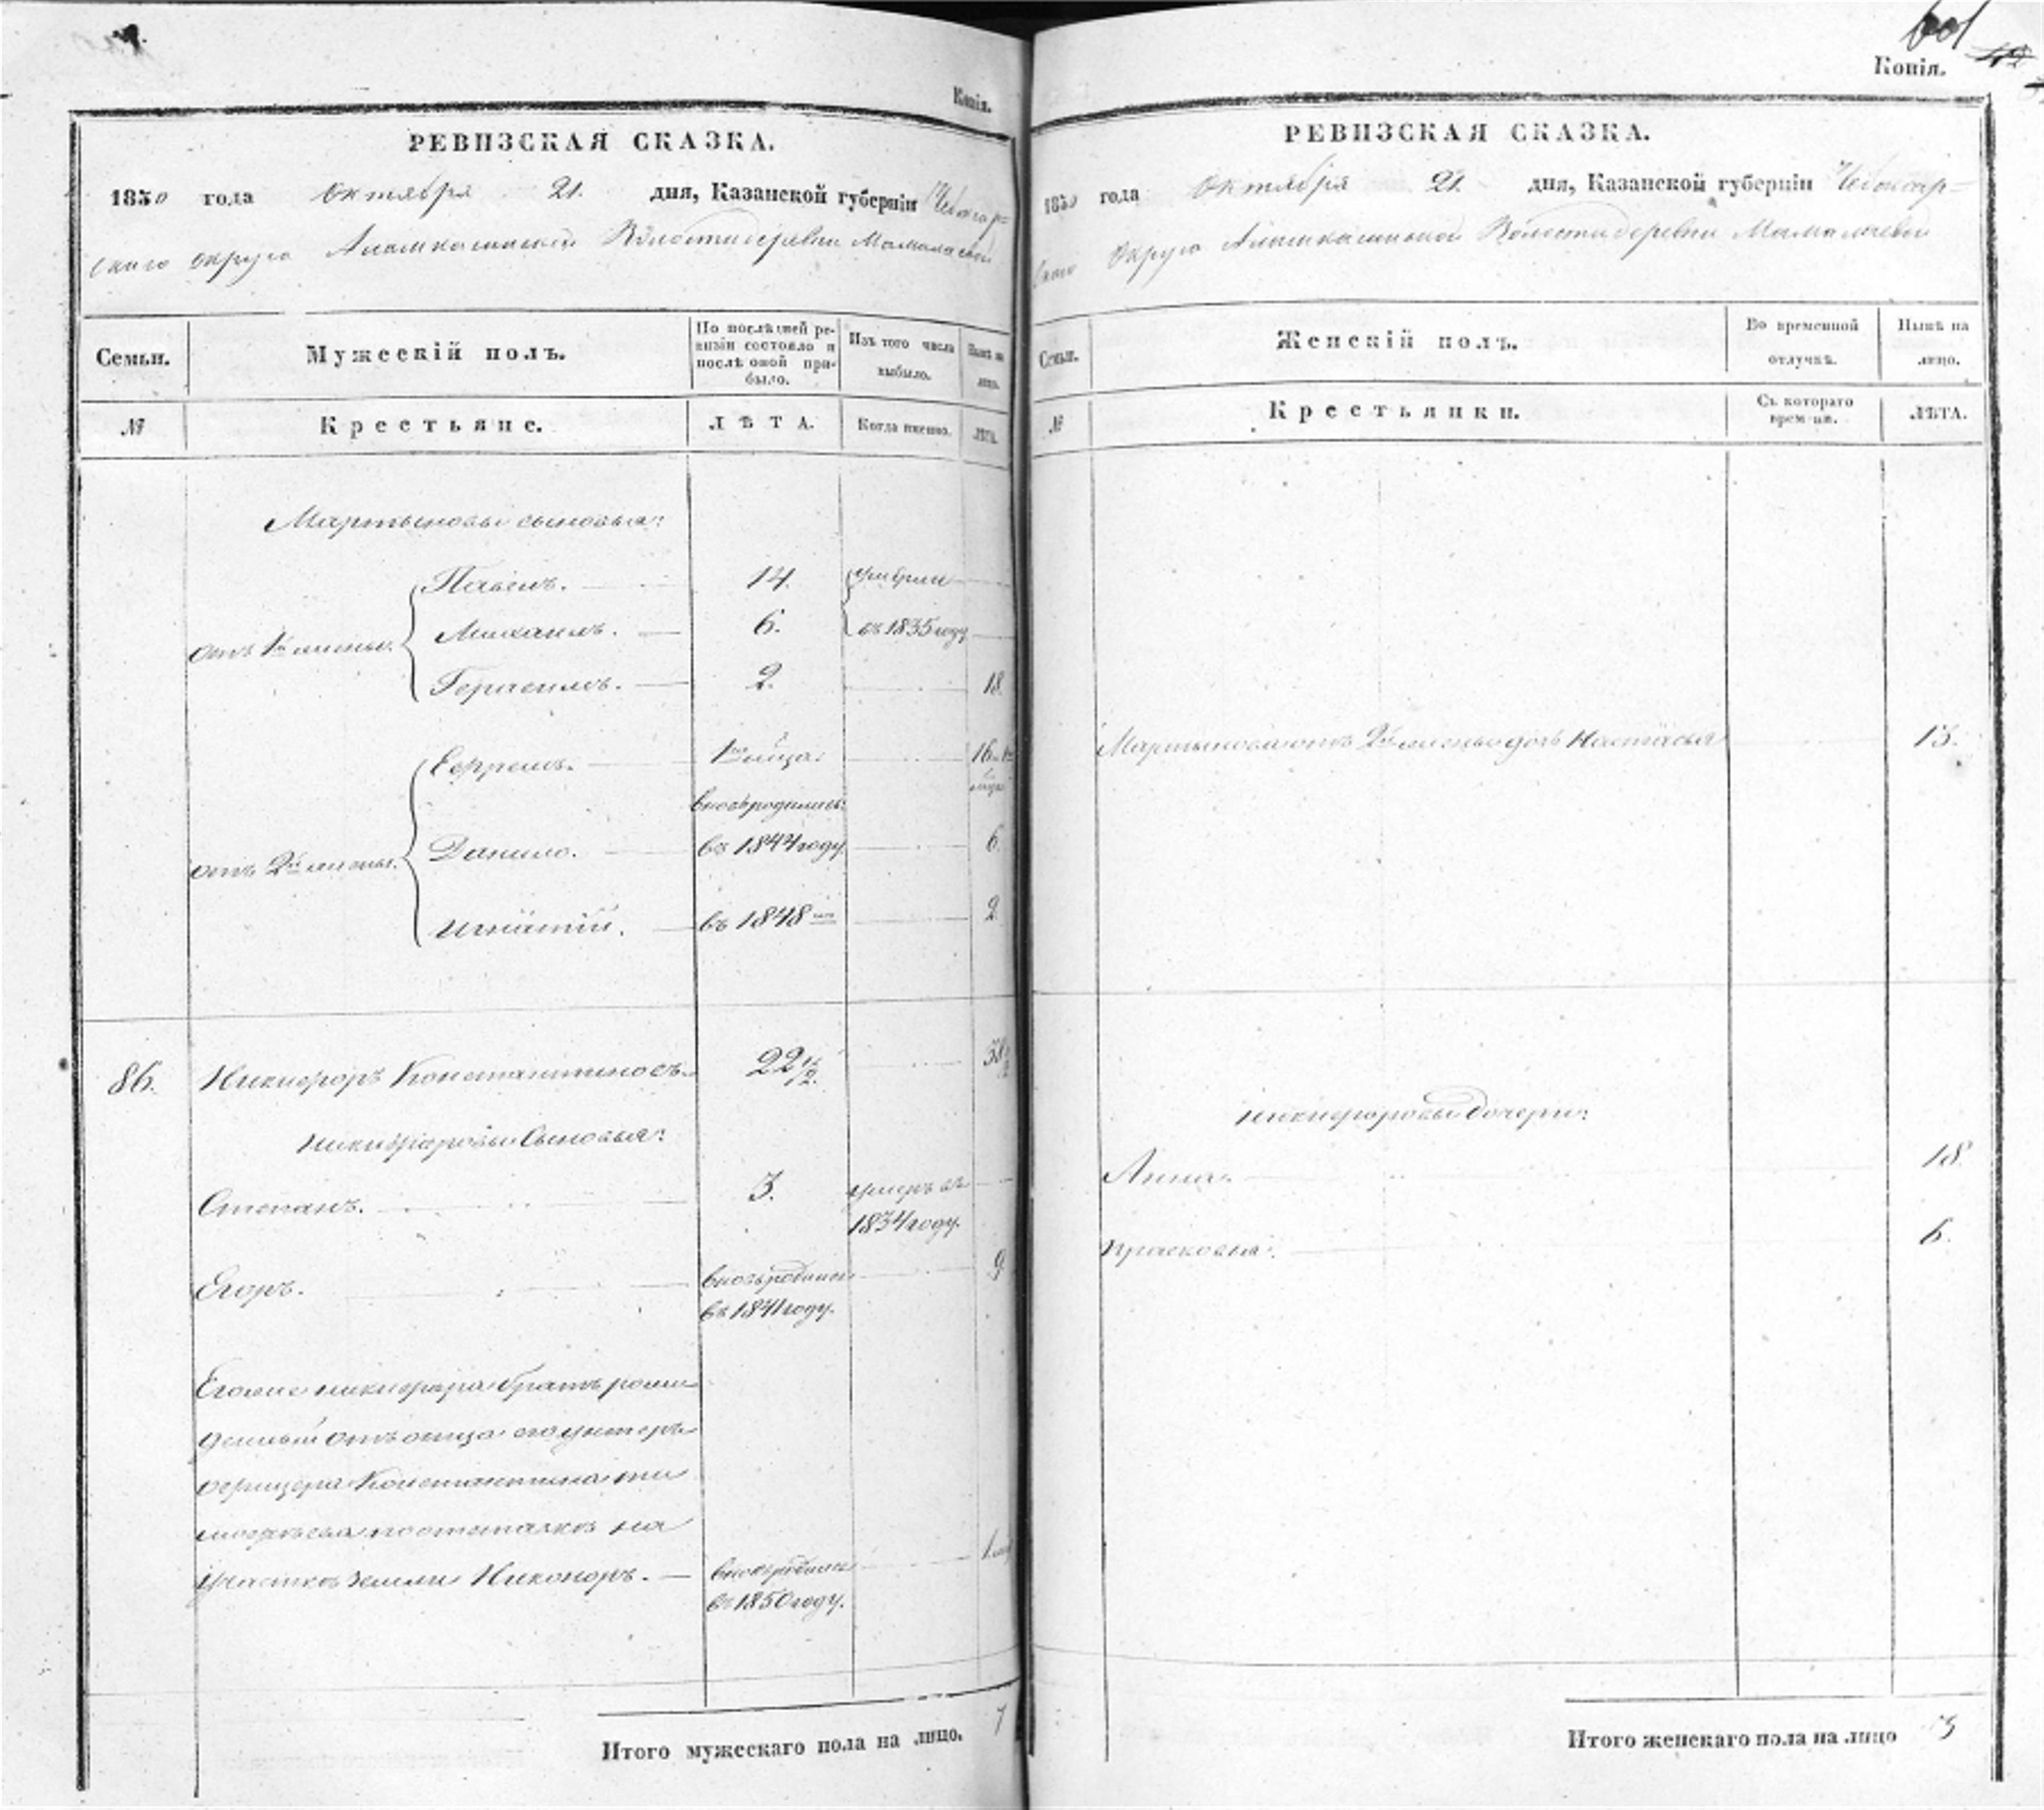 Копія.
РЕВИЗСКАЯ СКАЗКА.
1850 года Октября 21. дня, Казанской губерніи Чебоксар=
скаго округа Волости деревни
Семьи.
Мужескій полъ.
По послѣдней ре-
визіи состояло и
послѣ оной при-
было.
Изъ того числа
выбыло.
Нынѣ на
лицо.
№
Крестьяне.
ЛѢТА.
Когда именно.
ЛѢТА.
Мартыновы сыновья:
Павелъ. 14. умерли
отъ 1й жены. Михаилъ. 6. въ 1835 году
Герасимъ. 2. 18.
Ефремъ. 1го мѣсяца. 16
вновь родились:
отъ 2й жены. Данило. въ 1844 году. 6.
Игнатій. въ 1848 2.
86. Никифоръ Константиновъ 22 1/2. 38 1/2
Никифоровы Сыновья:
Степанъ. 3. умеръ въ
1834 году.
Егоръ. вновь родился 9.
въ 1841 году.
Егоже Никифора братъ рожж
денный отъ отца его унтеръ
офицера Константина Ти
мофѣева по отставкѣ на
участкѣ земли Никоноръ. вновь родился 1
въ 1850 году.
Итого мужескаго пола на лицо. 7
601
Копія.
РЕВИЗСКАЯ СКАЗКА.
1850 года Октября 21. дня, Казанской губерніи Чебоксар=
скаго Округа Волости деревни
Семьи.
Женскій полъ.
Во временной
отлучкѣ.
Нынѣ на
лицо.
№
Крестьянки.
Съ котораго
времени.
ЛѢТА.
Мартынова отъ 2й жены дочь Настасья 13.
Никифоровы дочери:
Анна. 18.
Прасковья. 6.
Итого женскаго пола на лицо 3